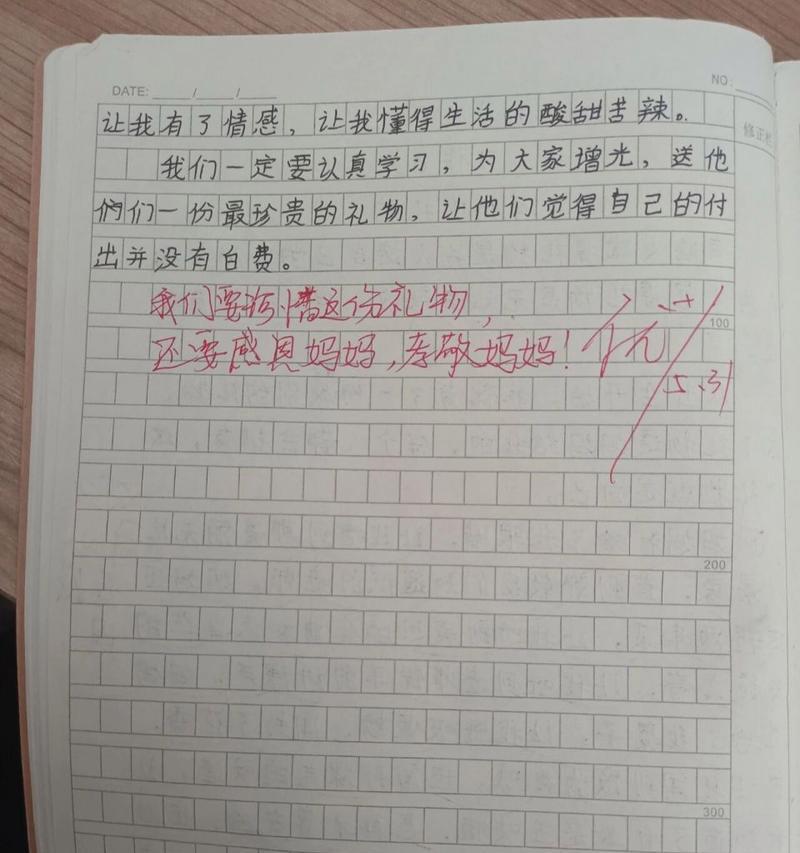 DATE: ____/____/____
NO:
让我有了情感，让我懂得生活的酸甜苦辣。
修正栏
我们一定要认真学习，为大家增光，送他
們们一份最珍贵的礼物，让他们觉得自己的付
出并没有白费。
我们要珍惜这份礼物，
还要感恩妈妈，孝敬妈妈！
优+
5.31
100
200
300